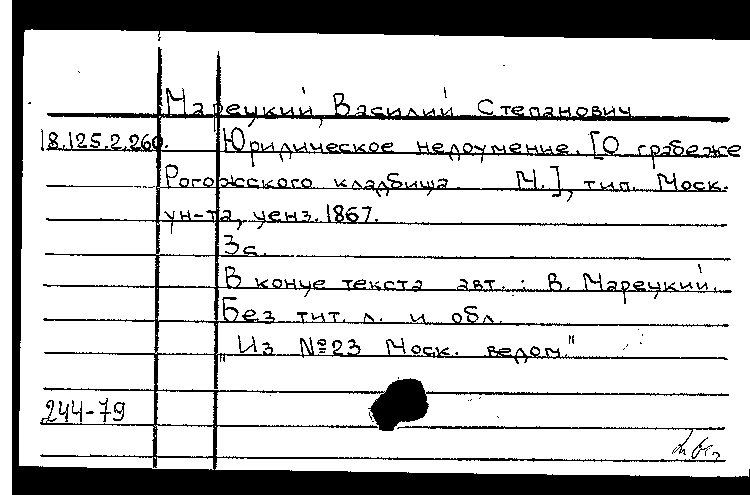 Марецкий, Василий Степанович
18.125.2.260. Юридическое недоумение. [О грабеже
Рогожского кладбища. М.], тип. Моск.
ун-та, ценз. 1867.
3 с.
В конце текста авт.: В. Марецкий.
Без тит. л. и обл.
"Из №23 Моск. ведом."
244-79